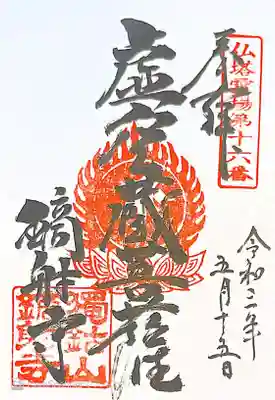 仏塔霊場第十六番
奉拝
令和二年
五月十五日
虚空蔵菩薩
鏑射寺
獨鈷山
鏑射寺